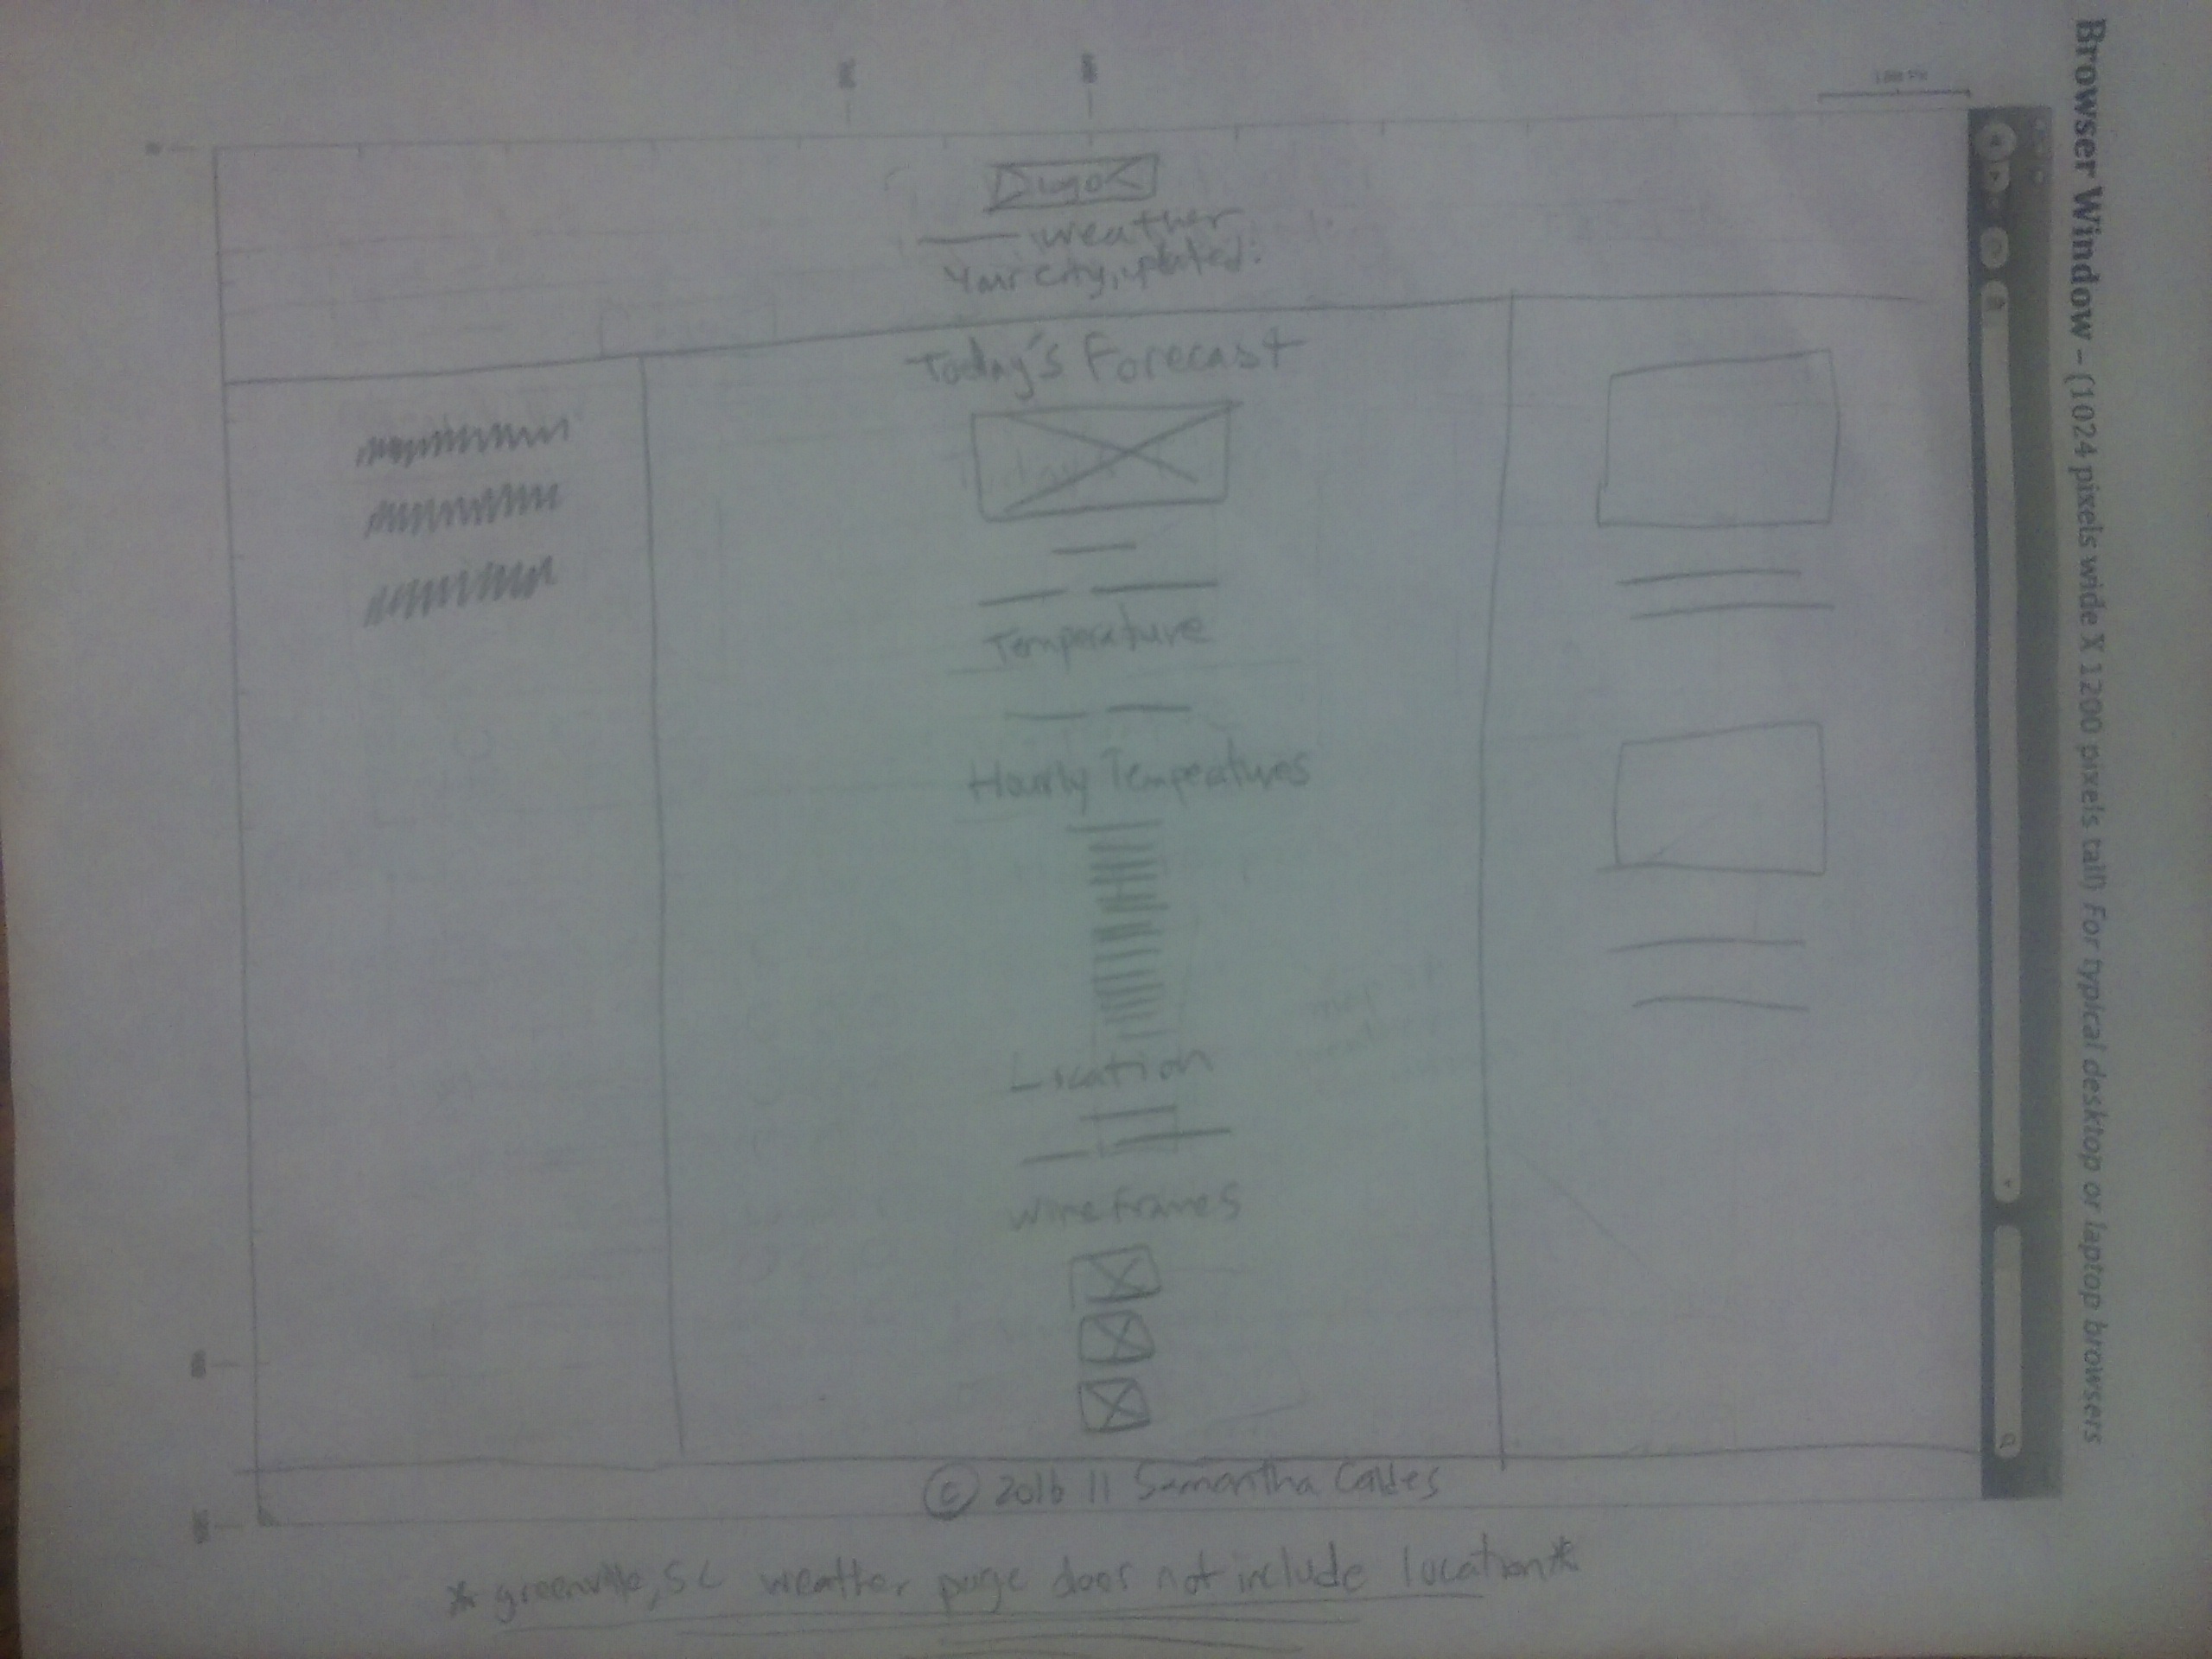 Browser Window – (1024 pixels wide X 1200 pixels tall) For typical desktop or laptop browsers
Logo
weather
Your city, updated.
Today's Forecast
Temperature
Hourly Temperatures
Location
Wireframes
© 2016 || Samantha
* greenville, SC weather page does not include location *